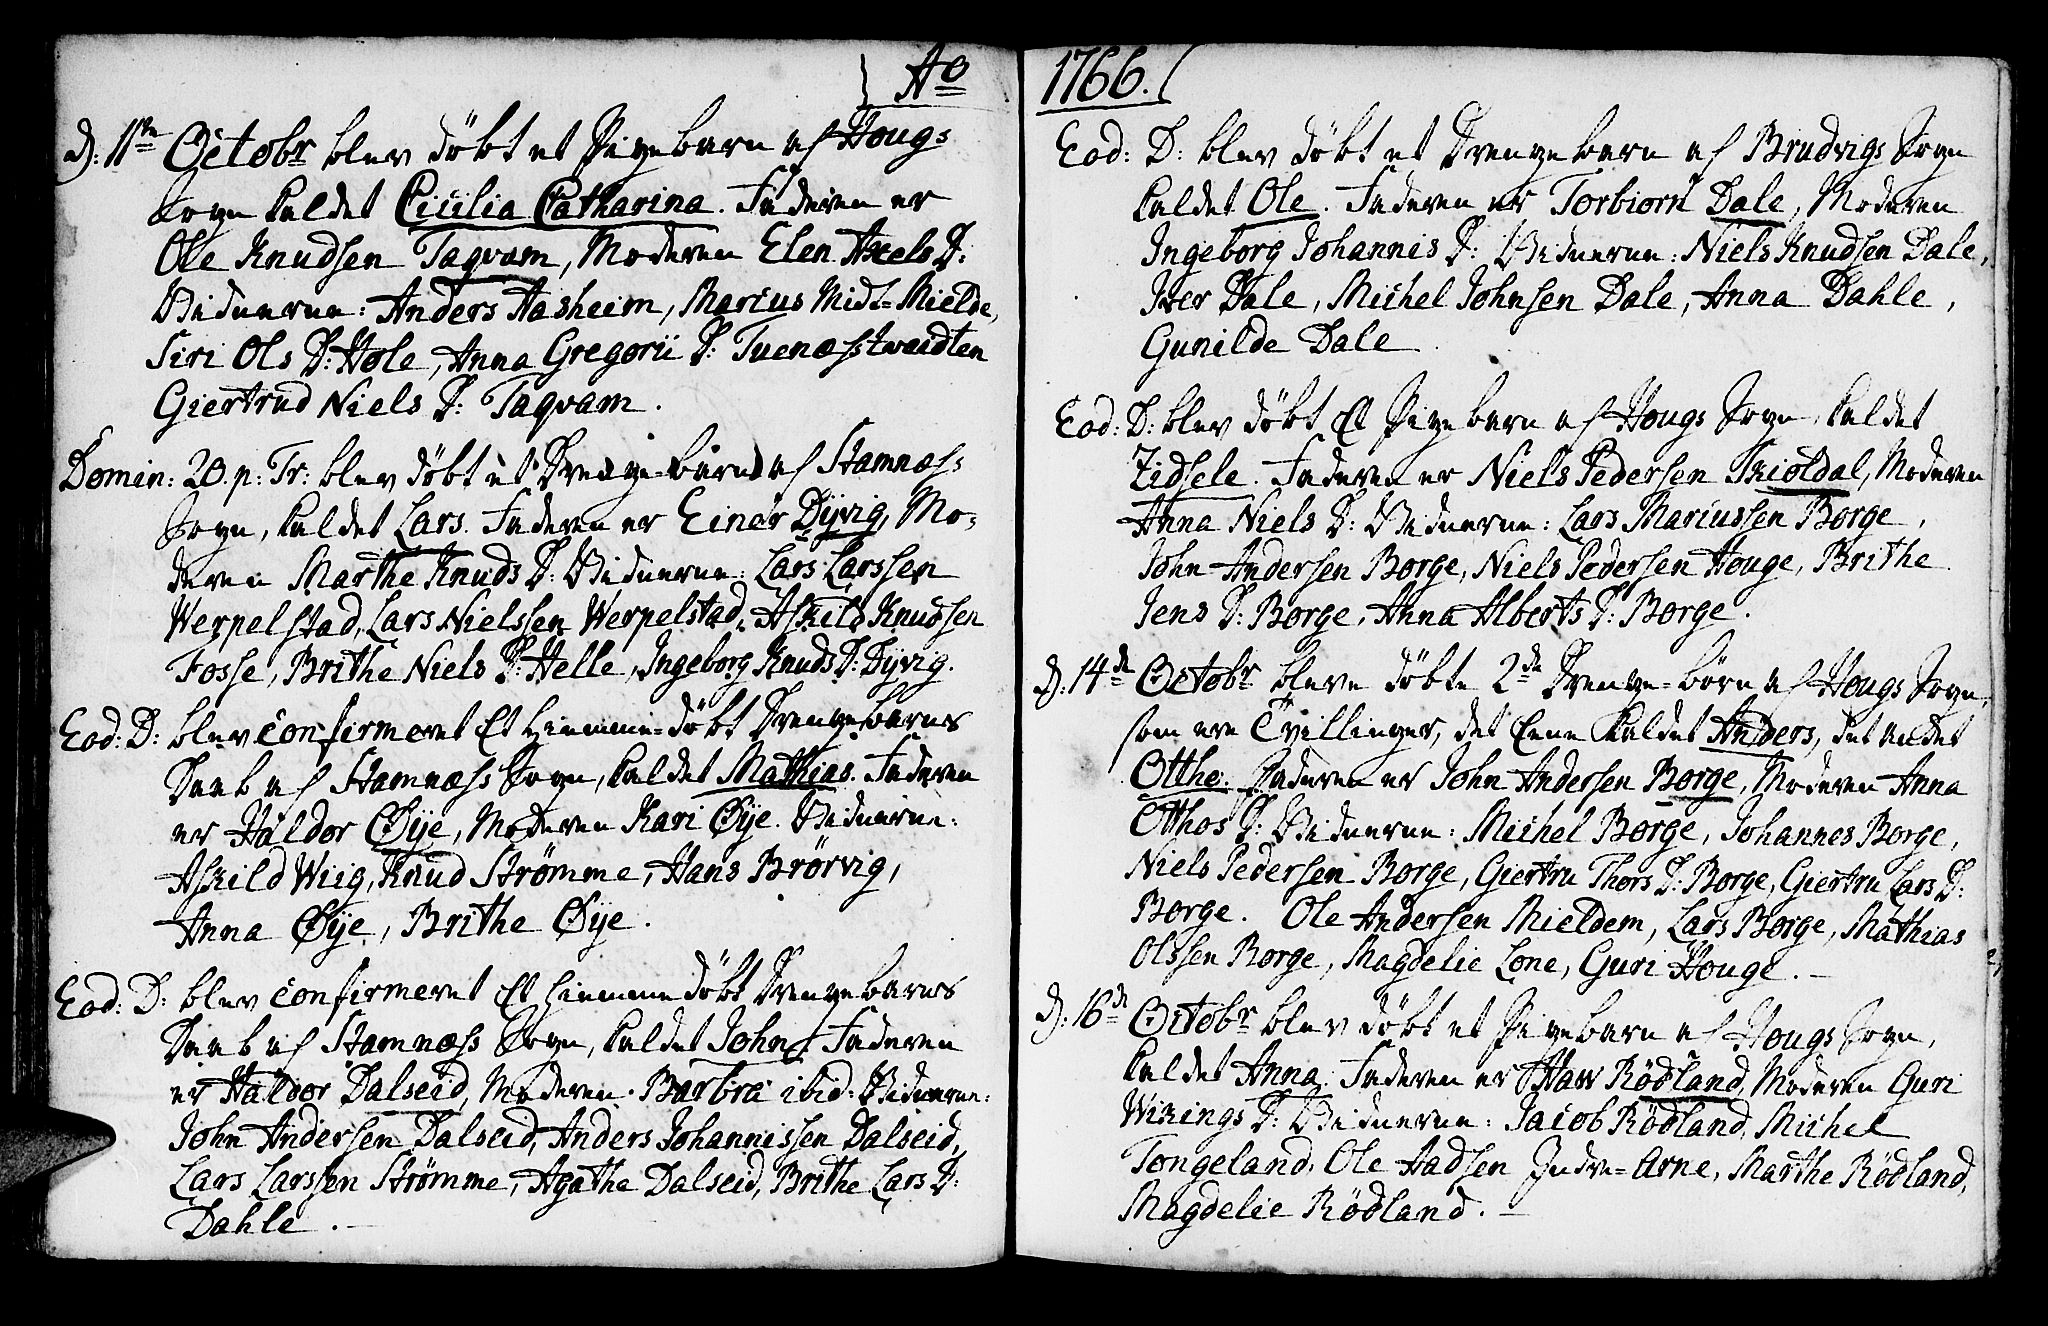 Ao
d: 11te Octobr blev døbt et Pigebarn af Hougs
Sogn kaldet Cicilia Catharina. Faderen er
Ole Knudsen Taqvam, Moderen Elen Axels D:
Vidnerne: Anders Aasheim, Marius Midt-Mielde,
Siri Ols D: Hole, Anna Gregorii D: Tuenæsstvedten
Giertrud Niels D: Taqvam.
Domin: 20. p: Tr: blev døbt et Drenge-barn af Stamnæss
Sogn, kaldet Lars. Faderen er Einer Dyvig, Mo-
deren Marthe Knuds D: Vidnerne: Lars Larssen
Werpelstad, Lars Nielssen Werpelstad, Askild Knudsen
Fosse, Brithe Niels D: Helle, Ingeborg Knuds D: Dyvig.
Eod: D: blev confirmeret Et hiemme-døbt Drengebarns
Daab af Stamnæss Sogn, kaldet Mathias. Faderen
er Haldor Øye, Moderen Kari Øye. Vidnerne:
Askild Wiig, Knud Strømme, Hans Brørvig,
Anna Øye, Brithe Øye.
Eod: D: blev confirmeret Et hiemmedøbt Drengebarns
Daab af Stamnæss Sogn, kaldet John. Faderen
er Haldor Dalseid, Moderen Barbra ibid: Vidnerne:
John Andersen Dalseid, Anders Johannissen Dalseid,
Lars Larssen Strømme, Agathe Dalseid, Brithe Lars D:
Dahle.
1766.
Eod: D: blev døbt et Drengebarn af Brudvigs Sogn
kaldet Ole. Faderen er Torbiørn Dale, Moderen
Ingeborg Johannis D: Vidnerne: Niels Knudsen Dale,
Iver Dale, Michel Johnsen Dale, Anna Dahle,
Gunilde Dale.
Eod: D: blev døbt Et Pigebarn af Hougs Sogn, kaldet
Zidsele. Faderen er Niels Pedersen Skioldal, Moderen
Anna Niels D: Vidnerne: Lars Mariussen Borge,
John Andersen Borge, Niels Pedersen Houge, Brithe
Jens D: Borge, Anna Alberts D: Borge.
d: 14de Octobr bleve døbte 2de Drenge-børn af Hougs Sogn,
som ere Tvillinger, det Eene kaldet Anders, det andet
Otthe. Faderen er John Andersen Borge, Moderen Anna
Otthos D: Vidnerne: Michel Borge, Johannes Borge,
Niels Pedersen Borge, Giertru Thors D: Borge, Giertru Lars D:
Borge. Ole Andersen Mieldem, Lars Borge, Mathias
Olssen Borge, Magdelie Lone, Guri Houge.
d: 16de Octobr blev døbt et Pigebarn af Hougs Sogn,
kaldet Anna. Faderen er Haw Rødland, Moderen Guri
Wikings D: Vidnerne: Jacob Rødland, Michel
Tongeland, Ole Aadsen Indre-Arne, Marthe Rødland,
Magdelie Rødland.